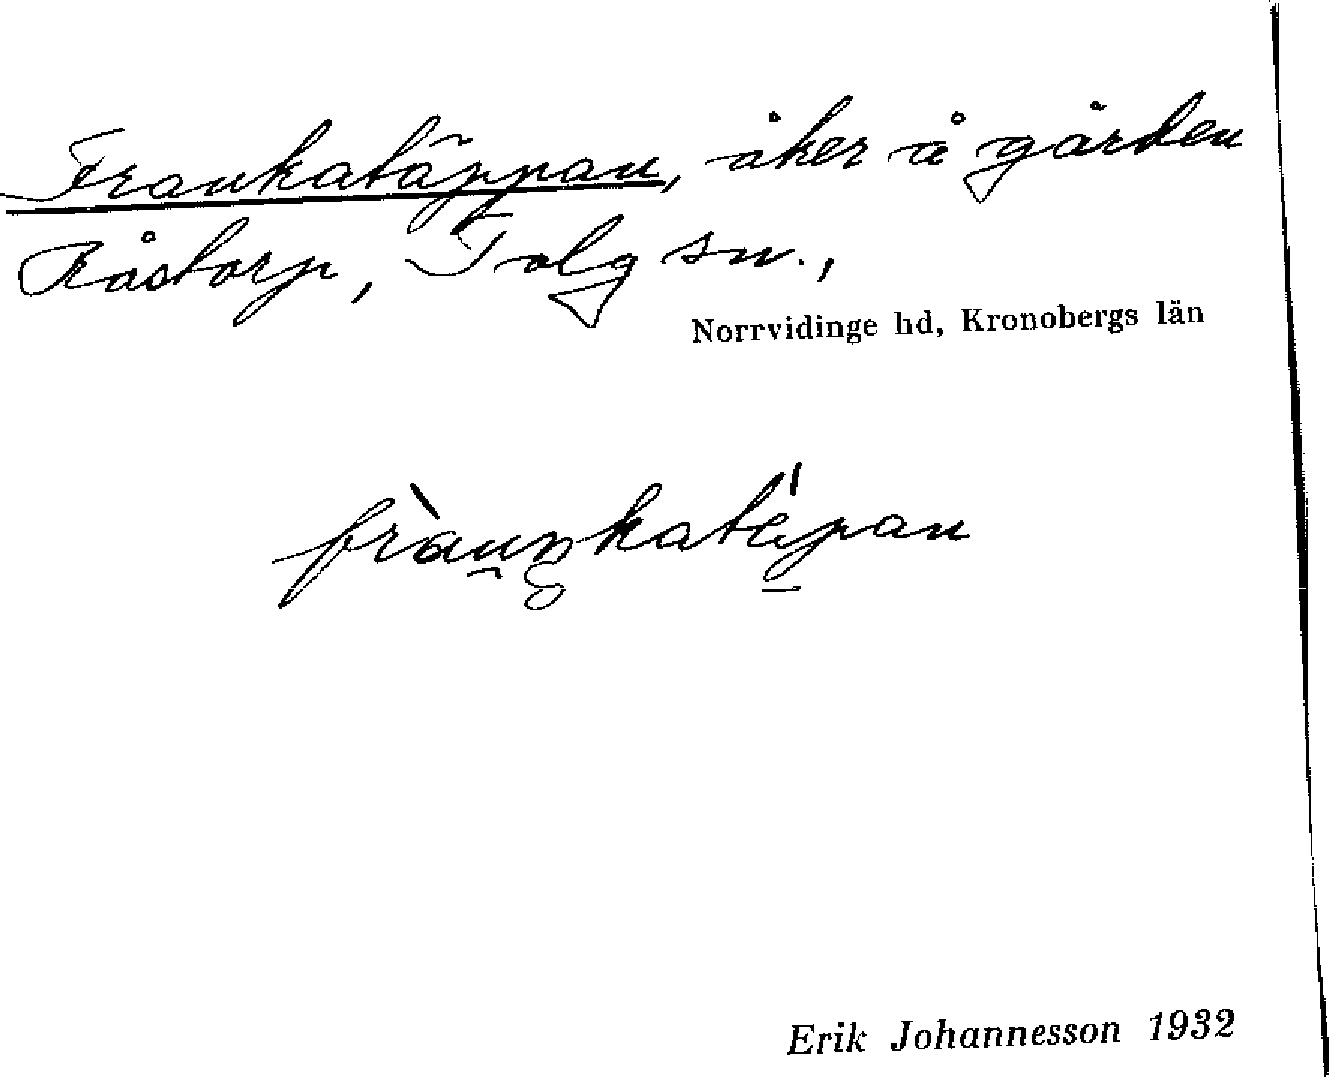 Frankatäppan, åker å gården
Råstorp, Tolg sn.,
Norrvidinge hd, Kronobergs län
Erik Johannesson 1932